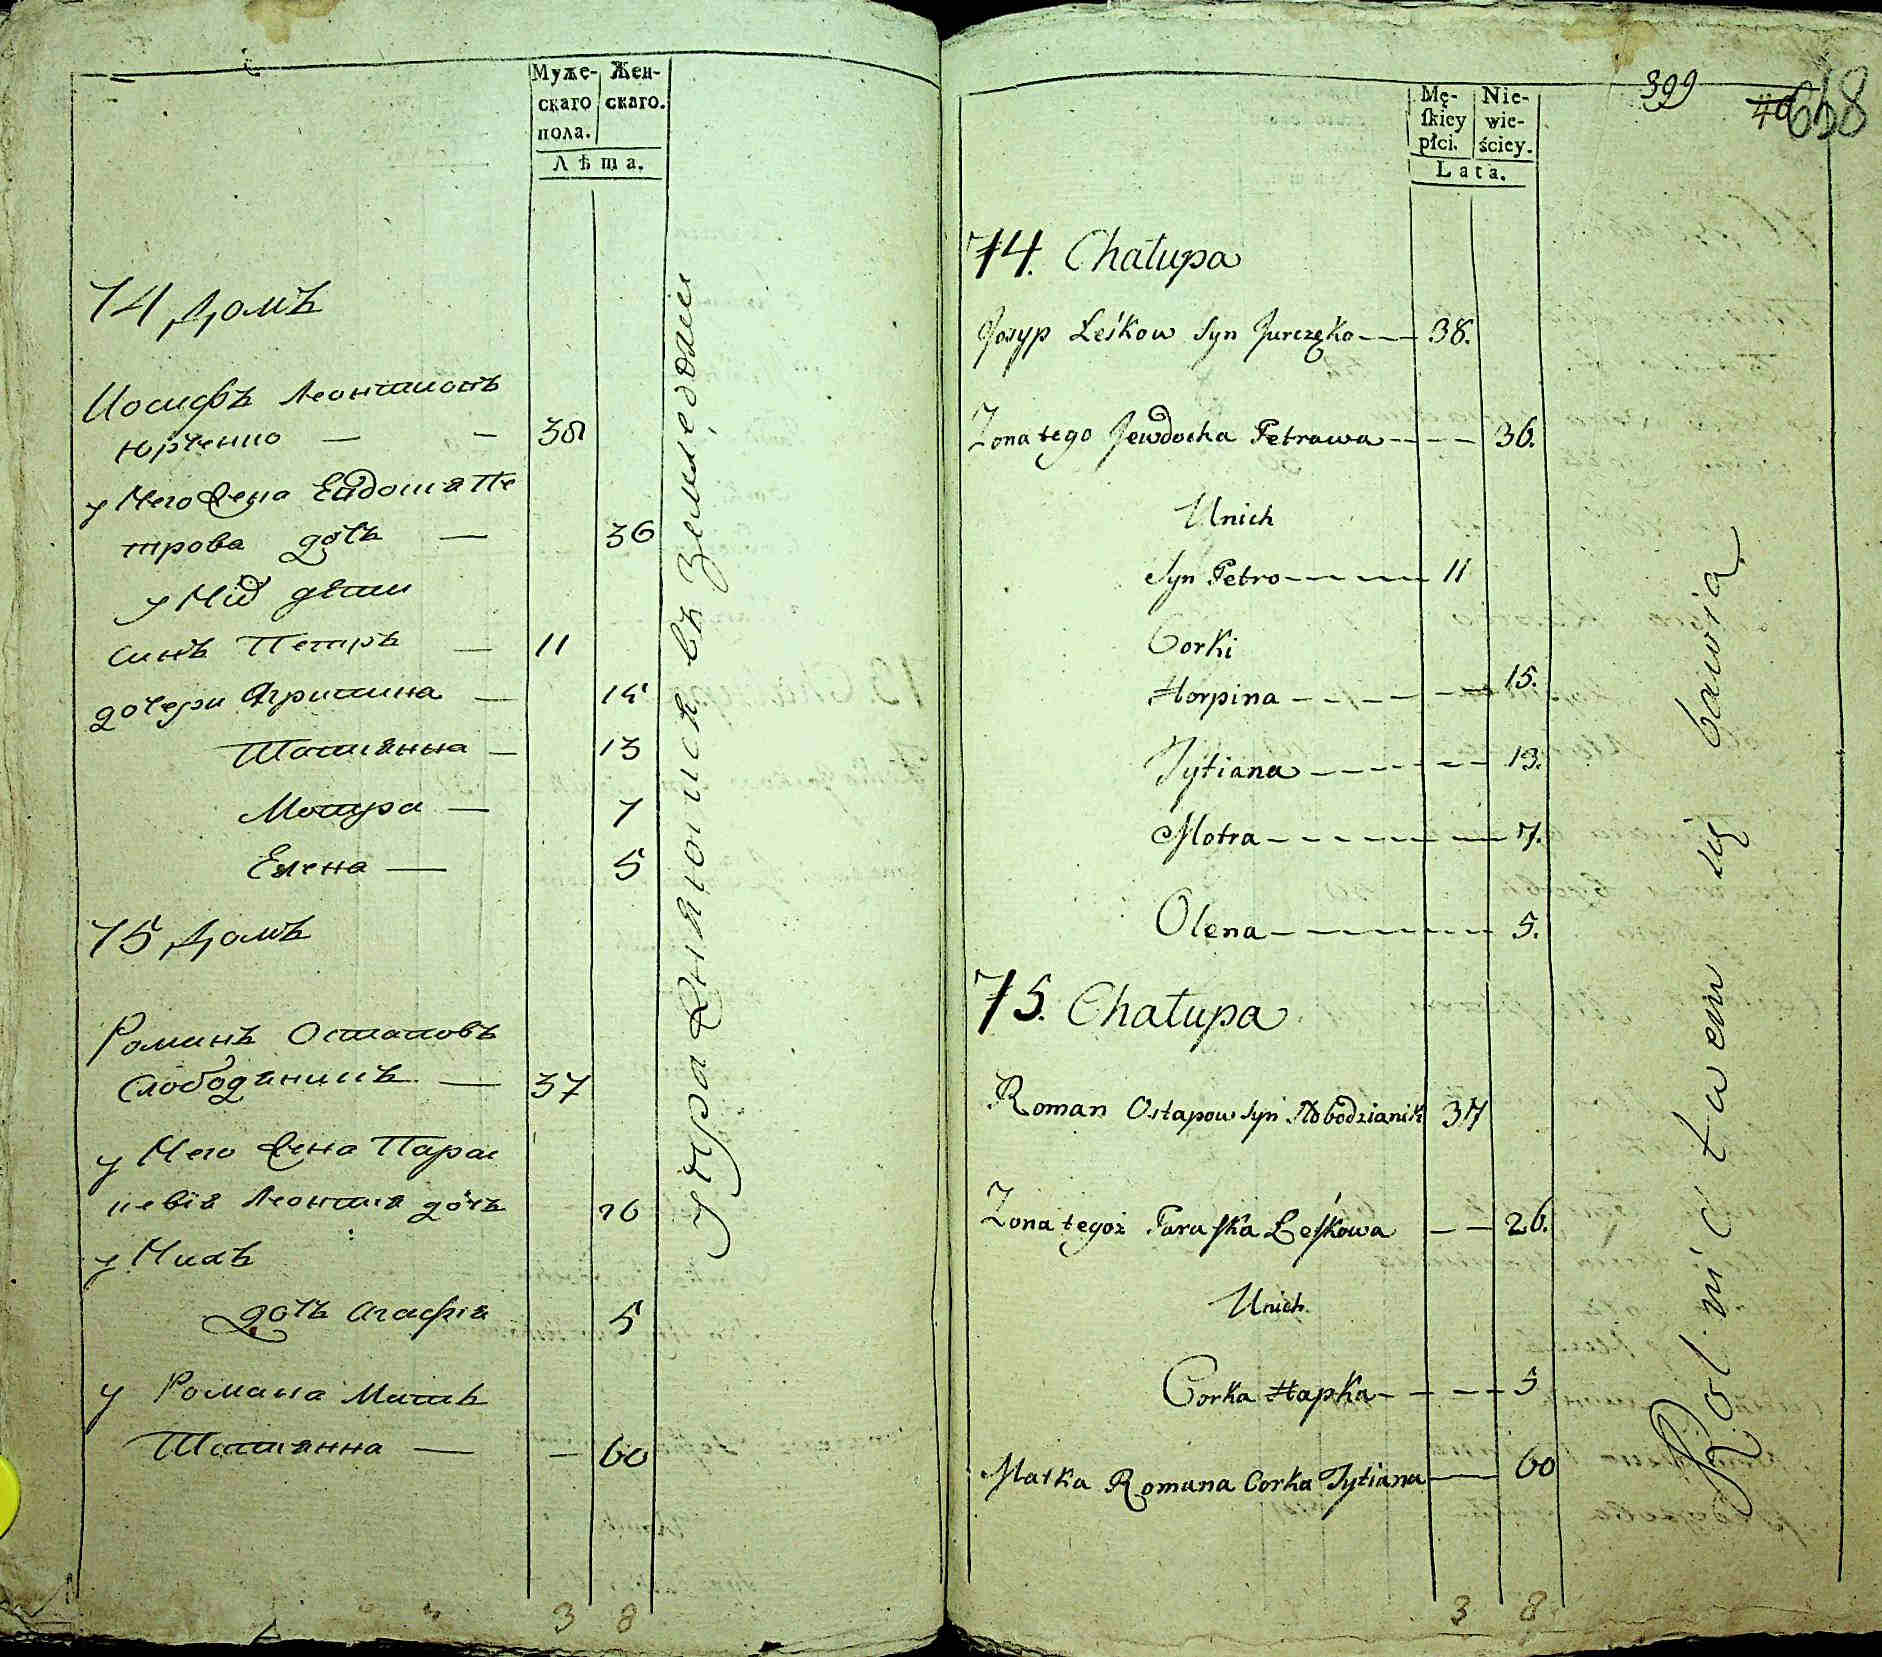 Муже-
скаго
пола.
Жен-
скаго.
Лѣта.
74 домъ
Иосифъ Леонтиовъ
Юрченко — — 38
у Него жена Евдокия Пе
трова дочь — 36
у Них дѣти
Синъ Петръ — 11
дочери Агрипина — 15
Татианна — 13
Мотра — 7
Елена — 5
75 домъ
Романъ Остаповъ
Слободяникъ — 37
у Него жена Парас
кевія Леонтия дочь 26
у Нихъ
дочь Агафія 5
у Романа Мать
Татианна — — 60
3 8
упражняются въ земледѣлии
399
658
Mę-
skiey
płci.
Nie-
wie-
ściey.
Lata.
74. Chałupa
Josyp Leśkow Syn Jurczęko --- 38.
Zona tego Jewdocha Petrowa --- 36.
Unich
Syn Petro ----- 11
Corki
Horpina ---- 15.
Tytiana ---- 13.
Motra ----- 7.
Olena ----- 5.
75. Chałupa
Roman Ostapow Syn Słobodzianik 37
Zona tegoż Paraska Leśkowa -- 26.
Unich.
Corka Hapka --- 5
Matka Romana Corka Tytiana — 60
3 8
Rolnictwem się bawią